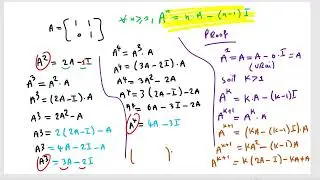 A = [1 1
1 1]
∀ n ≥ 1, Aⁿ = n·A − (n−1)I
A² = 2A − 1I
A³ = A²·A
A³ = (2A − I)·A
A³ = 2A² − A
A³ = 2(2A − I) − A
A³ = 4A − 2I − A
A³ = 3A − 2I
A⁴ = A³·A
A⁴ = (3A − 2I)·A
A⁴ = 3A² − 2A
A⁴ = 3(2A − I) − 2A
A⁴ = 6A − 3I − 2A
A⁴ = 4A − 3I
( )
PROOF
A¹ = A = A − 0·I = A
(vrai)
soit k ≥ 1
Aᵏ = kA − (k−1)I
Aᵏ⁺¹ = Aᵏ·A
Aᵏ⁺¹ = (kA − (k−1)I)·A
Aᵏ⁺¹ = kA² − (k−1)A
Aᵏ⁺¹ = k(2A − I) − kA + A